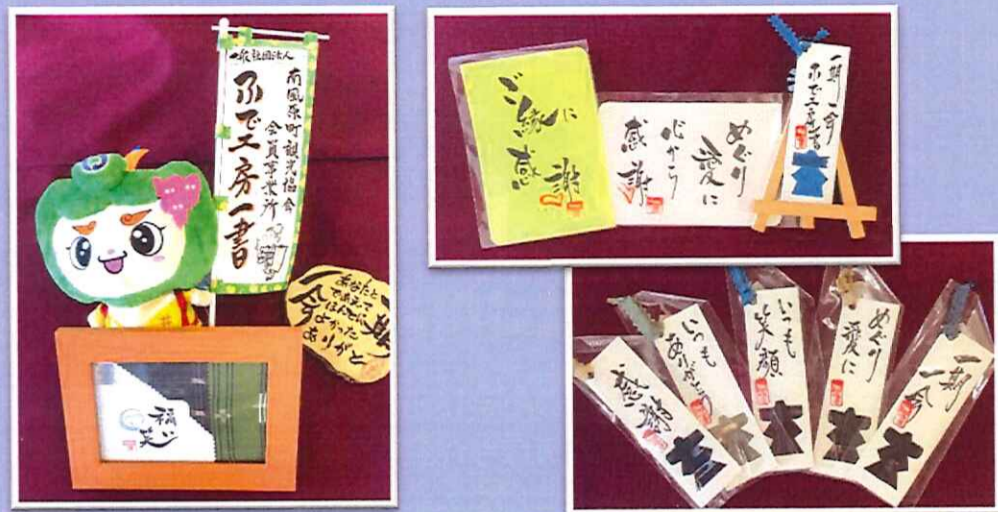 一般社団法人
南風原町観光協会
会員事業所
ふで工房一書
あなたと
であえて
ほんとに
よかった
ありがと
福
笑
ご縁に
感謝
めぐり
愛に
心から
感謝
一期一会
ふで工房一書
感謝
いつも
ありがとう
いつも
笑顔
めぐり
愛に
一期
一会